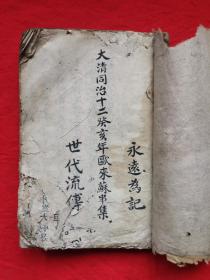 永遠為記
大清同治十二癸亥年歐來蘇集
世代流傳